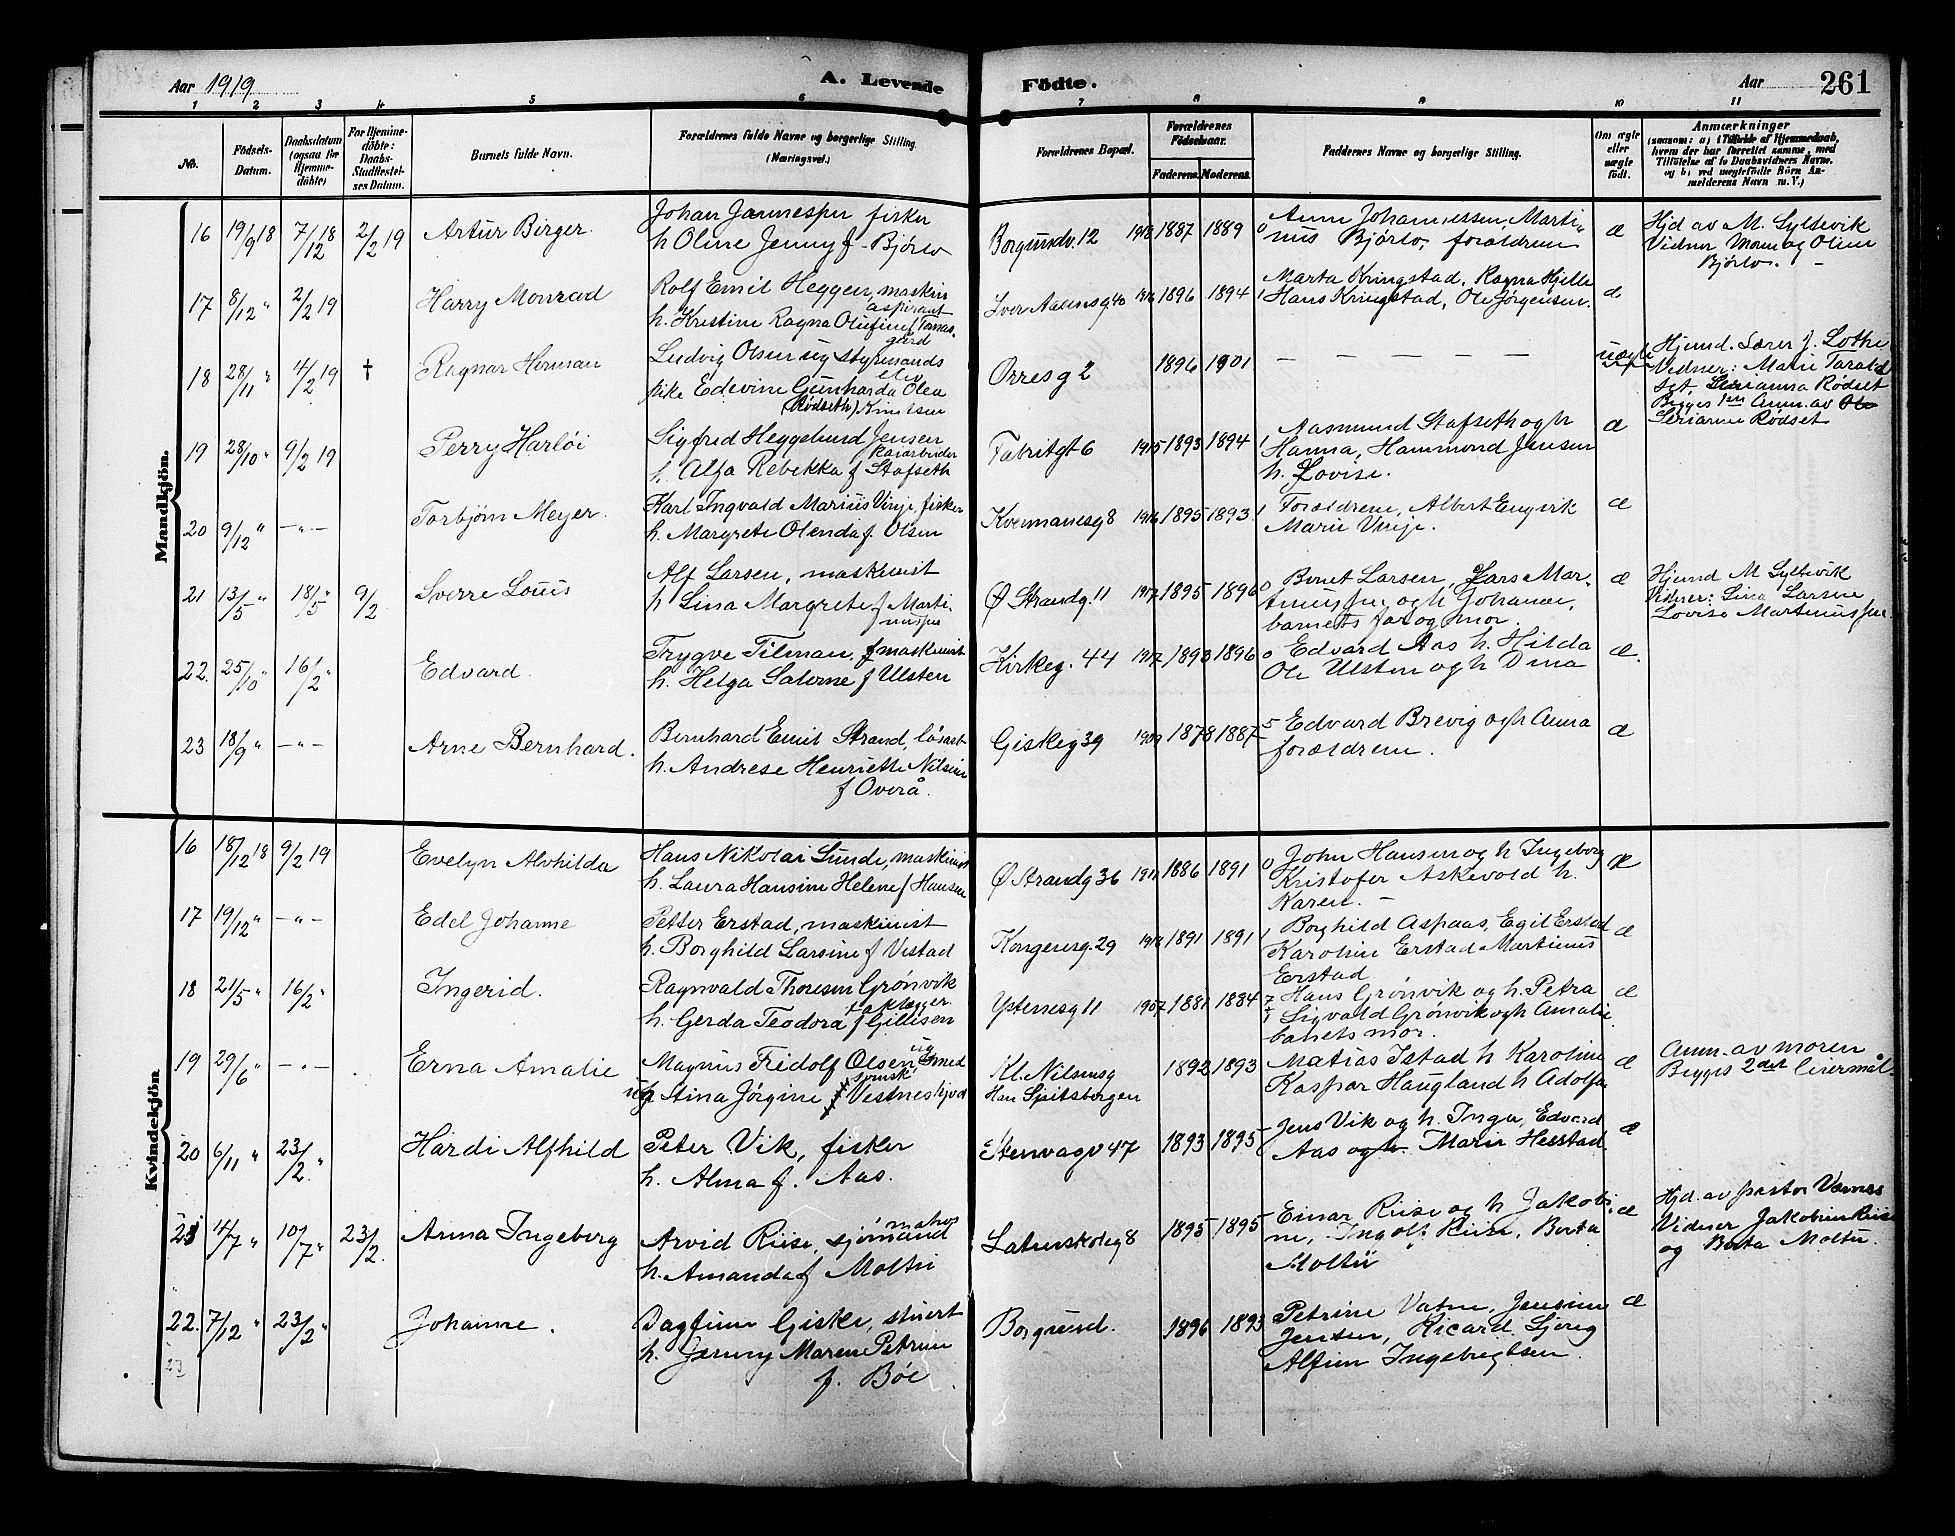 Aar 1919
A. Levende
Födte.
Aar
261
1 2 3 4 5 6 7 8 9 10 11
No.
Födsels-
Datum.
Daabsdatum
(ogsaa for
Hjemme-
döbte)
For Hjemme-
döbte:
Daabs-
Stadfæstel-
ses Datum.
Barnets fulde Navn.
Forældrenes fulde Navne og borgerlige Stilling.
(Næringsvei.)
Forældrenes Bopæl.
Forældrenes
Födselsaar.
Faderens.
Moderens.
Faddernes Navne og borgerlige Stilling.
Om ægte
eller
uægte
födt.
Anmærkninger
(saasom: a) i Tilfælde af Hjemmedaab,
hvem der har forrettet samme, med
Tilföielse af to Daabsvidners Navne.
og b) ved uægtefödte Börn An-
melderens Navn m. V.)
Mandkjön.
16 19/9 18 7/12 18 2/2 19 Artur Birger.
Johan Jannesper fisker
h. Oline Jenny f. Bjørlo
Borgundv. 12 1918 1887 1889 0
Anne Johannessen, Marti-
nus Bjørlo, forældrene
æ
Hjd av M. Syltevik
Vidner Moren og Oline
Bjørlo.
17 8/12 " 2/2 19 Harry Monrad
Rolf Emil Heggen, maskin
aspirant
h. Kristine Ragna Olufine f Tanas-
gård
Iver Aasensg. 40 1916 1896 1894 1
Marta Kringstad, Ragna Hjelle
Hans Kringstad, Ole Jørgensen.
æ
18 28/11 " 4/2 19 † Ragnar Herman
Ludvig Olsen ug styrmands
elev
pike Edevine Gunharda Olea
(Rødseth) Knutsen
Orresg 2 1896 1901
— — — — — —
uægte
Hjemd. Lærer J. Lothe
Vidner: Marie Tarald
set Serianna Rødset
Begges 1ste Anm. av
Serianna Rødset
19 28/10 " 9/2 19 Perry Harløi
Sigfred Heggelund Jensen
kaiarbeider
h. Alfa Rebekka f Stafseth
Fabrikgt 6 1915 1893 1894 1
Aasmund Stafseth og h
Hanna, Hammond Jensen
h. Lovise.
æ
20 9/12 " — " — Torbjørn Meyer.
Karl Ingvald Marius Vinje, fisker
h. Margrete Olenda f. Olsen
Kvennanesg 8 1916 1895 1893 1
Forældrene, Albert Engvik
Marie Vinje.
æ
21 13/5 " 18/5 " 9/2 Sverre Louis
Alf Larsen, maskinist
h Lina Margrete f Marti-
nussen
Ø Strandg. 11 1917 1895 1896 0
Bernt Larsen, Lars Mar-
tinussen og h Johanne,
barnets far og mor.
æ
Hjemd M Syltevik
Vidner: Lina Larsen
Lovise Martinussen
22. 25/10 " 16/2 " Edvard.
Trygve Tilman, maskinist
h. Helga Salome f Ulsten
Kirkeg. 44 1917 1893 1896 0
Edvard Aas h. Hilda
Ole Ulsten og h Dina
æ.
23 18/9 " — " — Arne Bernhard.
Bernhard Emil Strand, løsarb
h. Andrese Henriette Nilsine
f Overå.
Giskeg 39 1909 1878 1887 5
Edvard Brevig og h Anna
forældrene.
æ
Kvindekjön
16 18/12 18 9/2 19 Evelyn Alvhilda
Hans Nikolai Sunde, maskinist
h. Laura Hansine Helene f Hansen
Ø Strandg 36 1911 1886 1891 0
John Hansen og h Ingeborg
Kristofer Askevold h.
Karen.
æ
17 19/12 " — " — Edel Johanne
Petter Erstad, maskinist
h. Borghild Larsine f Vestad
Kongensg. 29 1918 1891 1891 1
Borghild Aspaas, Egil Erstad
Karoline Erstad Martinus
Erstad
æ
18 21/5 " 16/2 " Ingerid.
Ragnvald Thoresen Grønvik
taktægger
h. Gerda Teodora f Gillisen
Ystenesg 11 1907 1881 1884 7/1
Hans Grønvik og h. Petra
Sigvald Grønvik og h Amalie
barnets mor.
æ
19 29/6 " — " — Erna Amalie
Magnus Fridolf Olsen ug smed
svensk
ug Stina Jørgine Vestnes hjvd
Kl. Nilsensg
Han Spitsbergen
1892 1893
Matias Istad h Karoline
Kaspar Haugland h Adolfa
æ
Anm. av moren
Begges 2det leiermål.
20 6/11 " 23/2 " Hardi Alfhild
Peter Vik, fisker
h. Alma f. Aas.
Stenvågv 47 1893 1895
Jens Vik og h. Inga, Edvard
Aas og h Marie Hesstad.
æ
21 4/7 " 10/7 " 23/2. Anna Ingeborg
Arvid Riise, sjømand
h. Amanda f Moltu
Latinskoleg 8 1895 1895
Einar Riise og h Jakobi-
ne, Ingolf Riise, Berta
Moltu
æ
Hjd. av pastor Værnes
Vidner Jakobine Riise
og Berta Moltu.
22. 7/12 " 23/2 " Johanne.
Dagfinn Giske, stuert
h. Jenny Maren Petrine
f. Bøe
Borgund. 1896 1893
Petrine Vatne, Jensine
Jensen, Ricard Sjong
Alfien Ingebrigtsen.
æ
23